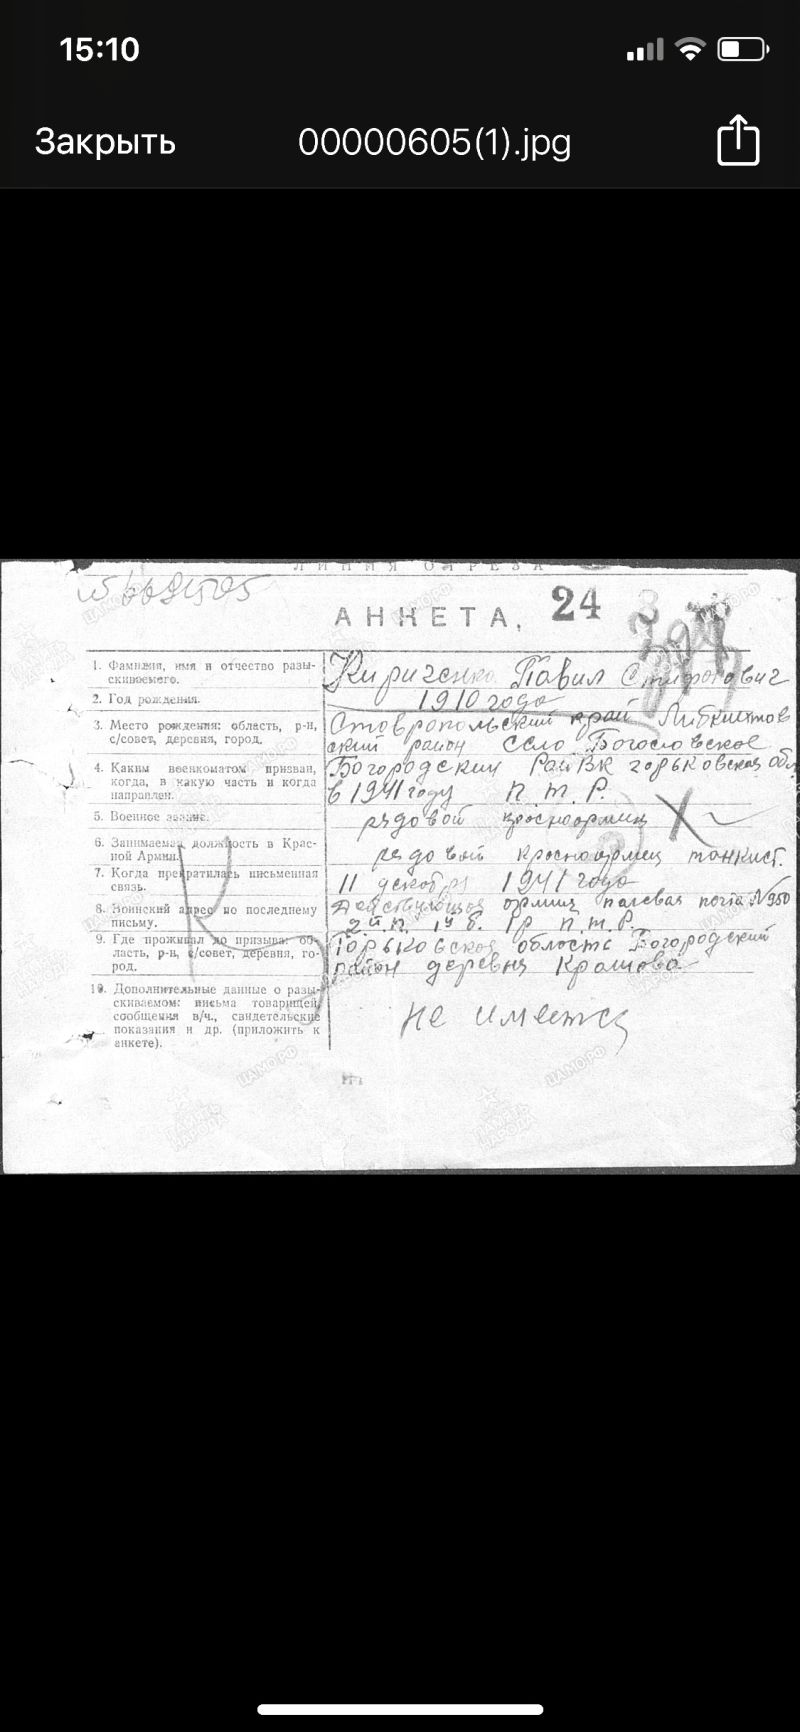 15:10
Закрыть
00000605(1).jpg
ЛИНИЯ ОТРЕЗА
АНКЕТА,
24
1. Фамилия, имя и отчество разы-
скиваемого.
Кириченко Павил
2. Год рождения.
1910 года
3. Место рождения: область, р-н,
с/совет, деревня, город.
Ставропольский край Либкнихтов
ский район село Богословское
4. Каким военкоматом призван,
когда, в какую часть и когда
направлен.
Богородский РайВК горьковская обл.
в 1941 году П.Т.Р.
5. Военное звание.
рядовой красноормиц
6. Занимаемая должность в Крас-
ной Армии.
рядовой красноормиц танкист.
7. Когда прекратилась письменная
связь.
11 декабря 1941 года
8. Воинский адрес по последнему
письму.
Действующая ормиц полевая почта №950
2й п. 1й б. Гр П.Т.Р.
9. Где проживал до призыва: об-
ласть, р-н, с/совет, деревня, го-
род.
Горьковская область Богородский
район деревня
10. Дополнительные данные о разы-
скиваемом: письма товарищей,
сообщения в/ч., свидетельские
показания и др. (приложить к
анкете).
не имеетса
ЦАМО.РФ
ПАМЯТЬ
НАРОДА